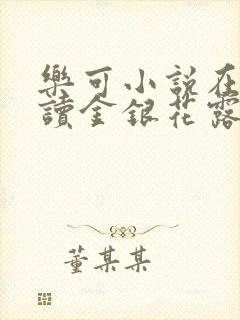 樂可小說在
讀金銀花露
董某某